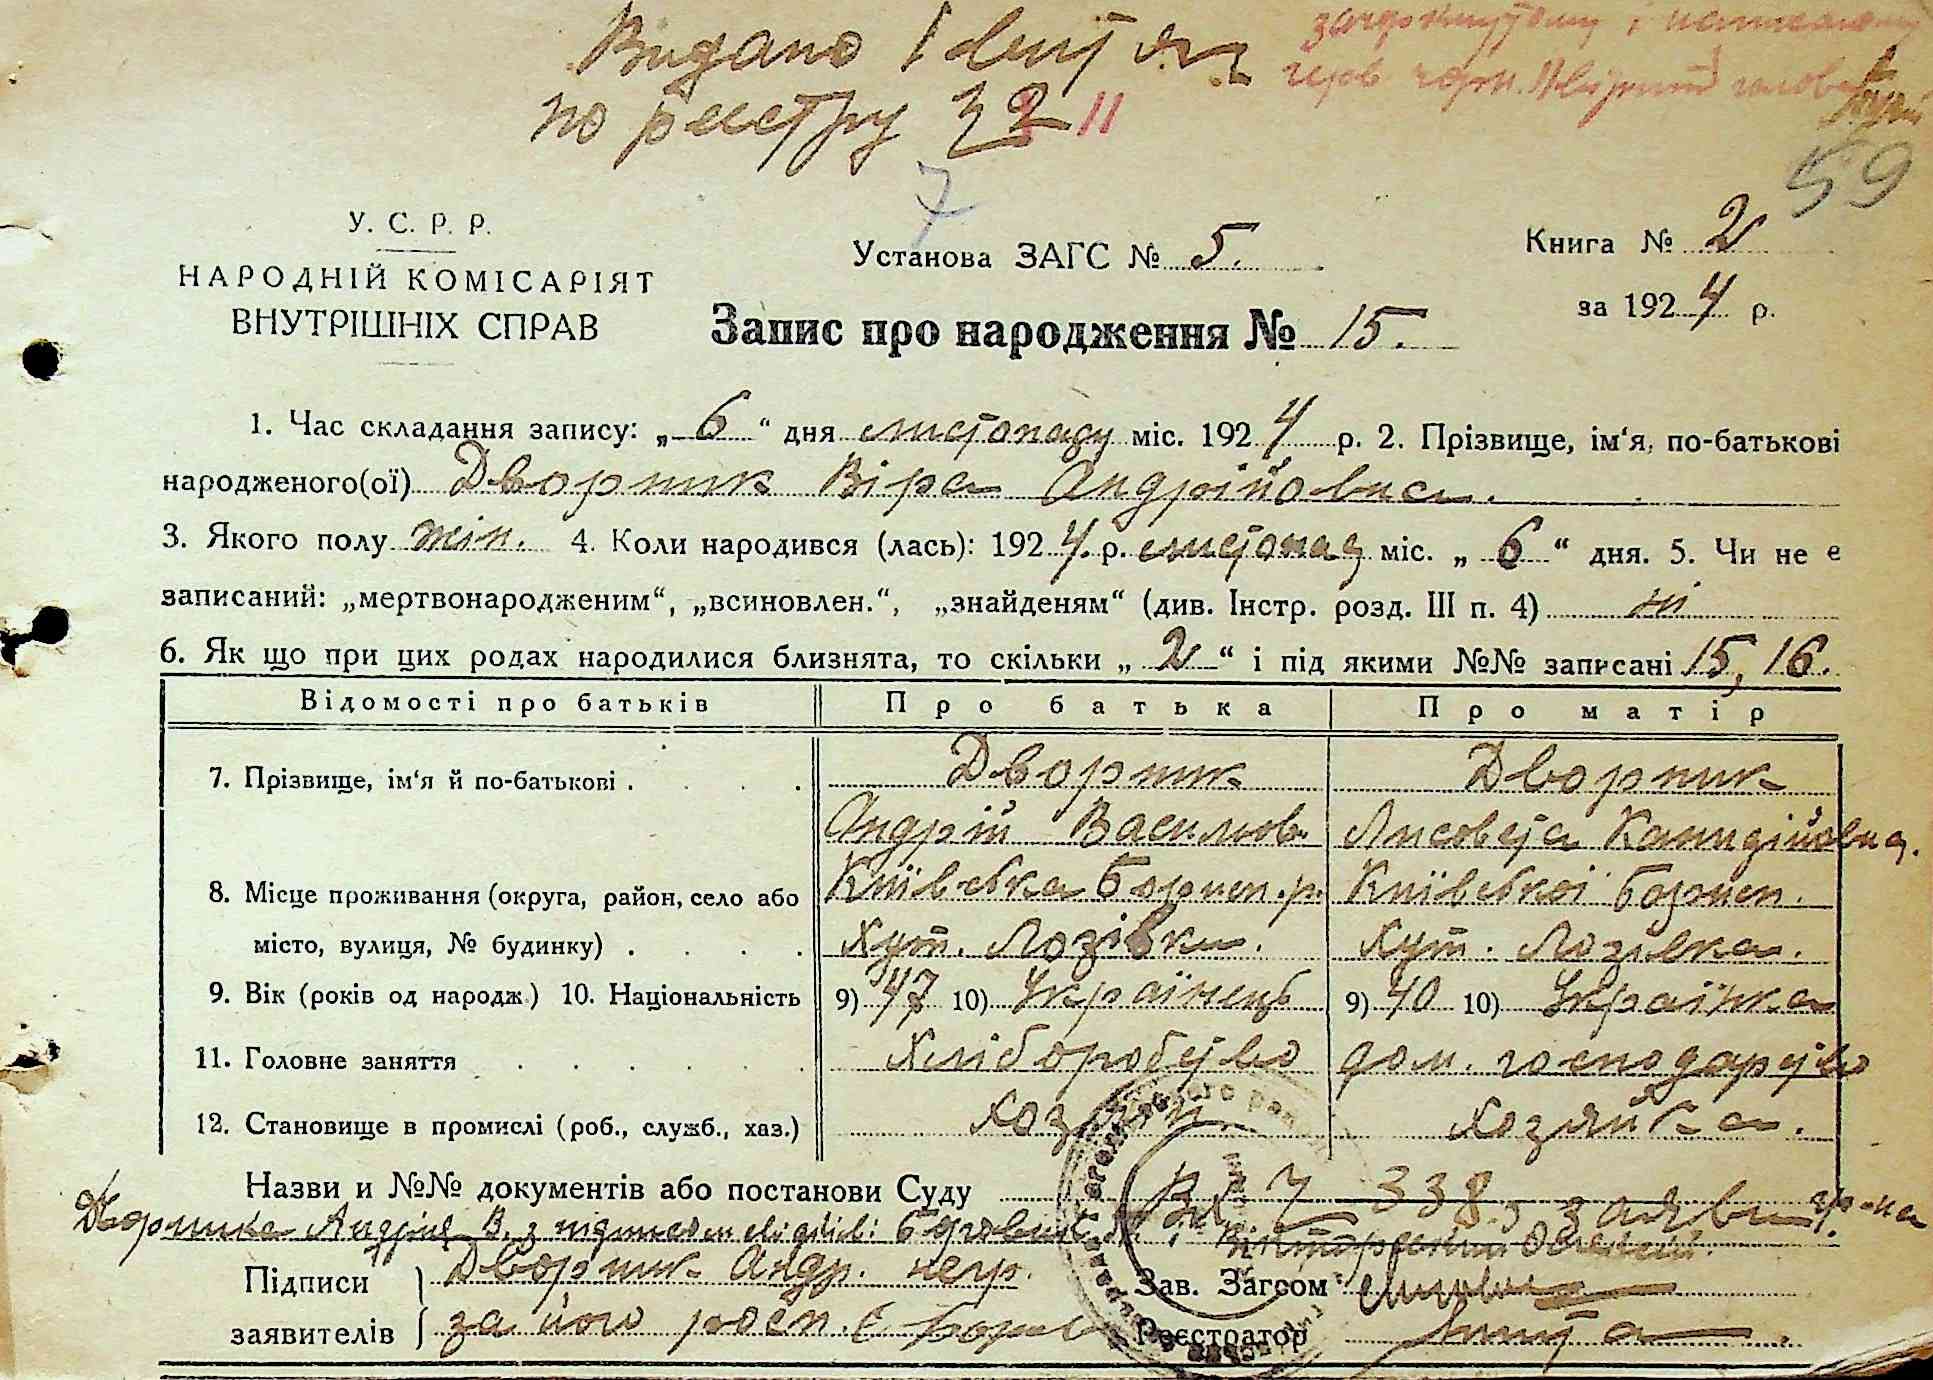 Видано 1 витяг
по реєстру 32 11
59
7
У. С. Р. Р.
НАРОДНІЙ КОМІСАРІЯТ
ВНУТРІШНІХ СПРАВ
Установа ЗАГС № 5.
Книга № 2
за 1924 р.
Запис про народження № 15.
1. Час складання запису: „ 6 “ дня листопаду міс. 1924 р. 2. Прізвище, ім‘я, по-батькові
народженого(ої) Дворник Віра Андрійовна.
3. Якого полу жін. 4. Коли народився (лась): 1924. р. листопад міс. „ 6 “ дня. 5. Чи не є
записаний: „мертвонародженим“, „всиновлен.“, „знайденям“ (див. Інстр. розд. III п. 4) ні
6. Як що при цих родах народилися близнята, то скільки „ 2 “ і під якими №№ записані 15, 16.
Відомості про батьків Про батька Про матір
7. Прізвище, ім‘я й по-батькові . . . . Дворник Дворник
Андрій Васильов. Лисовета
8. Місце проживання (округа, район, село або Київська Борисп. р. Київської Борисп.
місто, вулиця, № будинку) . . . . Хут. Лозівка. Хут. Лозівка.
9. Вік (років од народж.) 10. Національність 9) 47 10) Українець 9) 40 10) Українка
11. Головне заняття . . . . . Хліборобство дом. господарство
12. Становище в промислі (роб., служб., хаз.) хозяїн. хозяйка.
Назви и №№ документів або постанови Суду № 338, заяви гр-на
Дворника Андрія В. з підписом свідків:
Підписи Дворник Андр. негр. Зав. Загсом
заявителів за його росп. Реєстратор